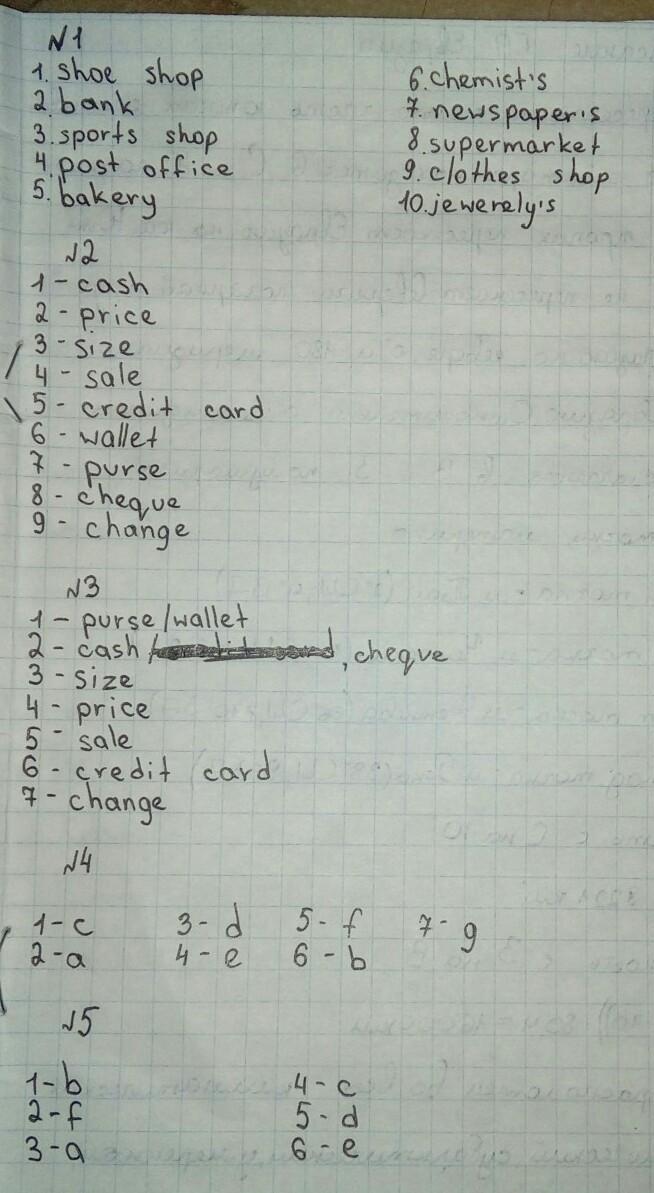 N1
1. shoe shop
2. bank
3. sports shop
4. post office
5. bakery
6. chemist's
7. newspaper's
8. supermarket
9. clothes shop
10. jewerely's
N2
1 - cash
2 - price
3 - size
4 - sale
5 - credit card
6 - wallet
7 - purse
8 - cheque
9 - change
N3
1 - purse/wallet
2 - cash, cheque
3 - size
4 - price
5 - sale
6 - credit card
7 - change
N4
1 - c 3 - d 5 - f 7 - g
2 - a 4 - e 6 - b
N5
1 - b 4 - c
2 - f 5 - d
3 - a 6 - e